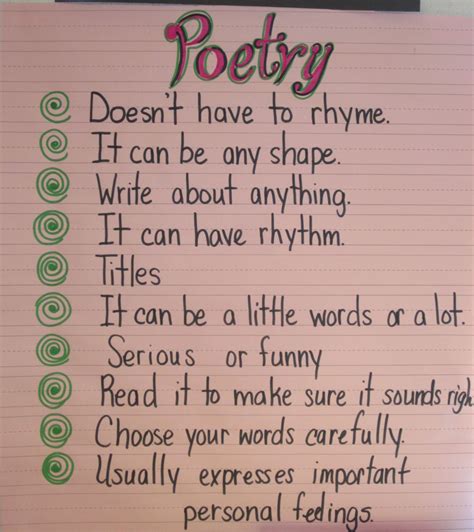 Poetry
Doesn't have to rhyme.
It can be any shape.
Write about anything.
It can have rhythm.
Titles
It can be a little words or a lot.
Serious or funny
Read it to make sure it sounds righ
Choose your words carefully.
Usually expresses important
personal feelings.